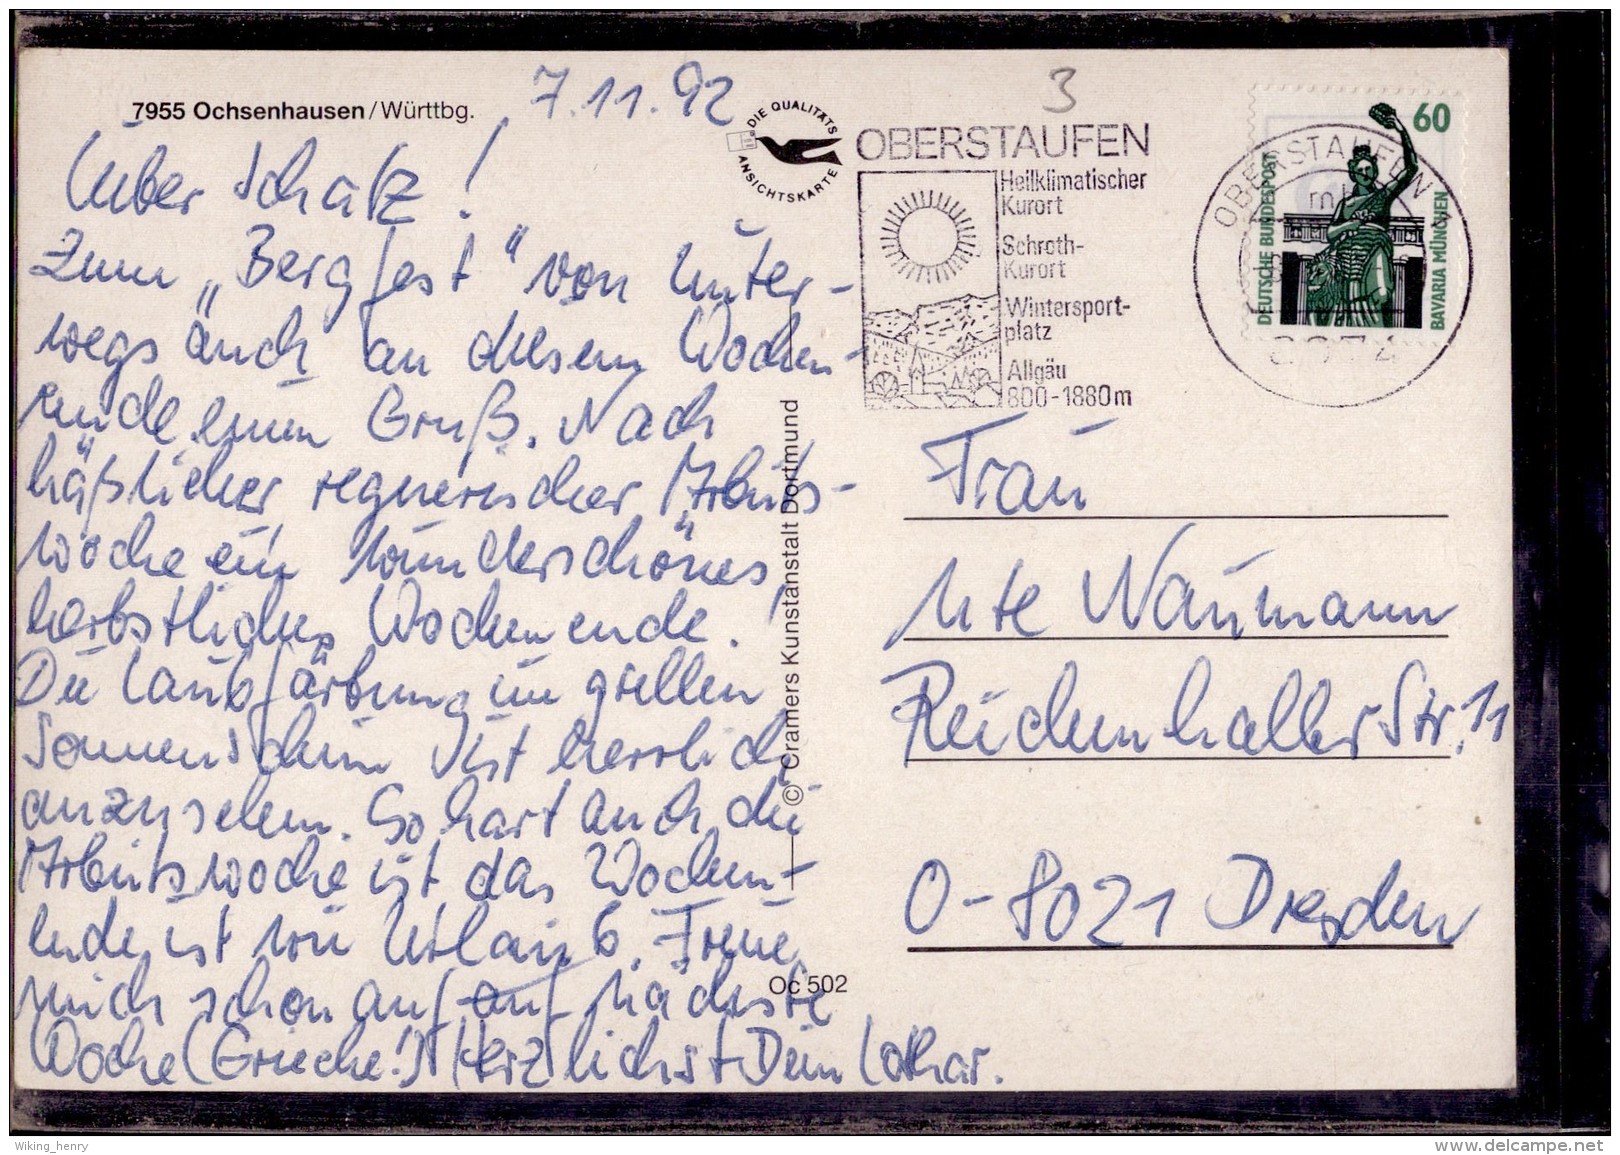 7955 Ochsenhausen/Württbg.
7.11.92
3
DIE QUALITÄTS
ANSICHTSKARTE
Lieber Schatz!
Zum „Bergfest“ von Unter-
wegs auch an diesem Wochen-
ende einen Gruß. Nach
häßlicher regnerischer Arbeits-
woche ein wunderschönes
herbstliches Wochenende!
Die Laubfärbung im grellen
Sonnenschein ist herrlich
anzusehen. So hart auch die
Arbeitswoche ist das Wochen-
ende ist wie Urlaub. Freue
mich schon auf auf nächste
Woche (Grieche!) Herzlichst Dein Lothar.
© Cramers Kunstanstalt Dortmund
Oc 502
OBERSTAUFEN
Heilklimatischer
Kurort
Schroth-
Kurort
Wintersport-
platz
Allgäu
800-1880m
OBERSTAUFEN 1
mb
8974
60
DEUTSCHE BUNDESPOST
BAVARIA MÜNCHEN
Frau
Ute Naumann
Reichenhaller Str. 11
O-8021 Dresden
Wiking_henry
www.delcampe.net